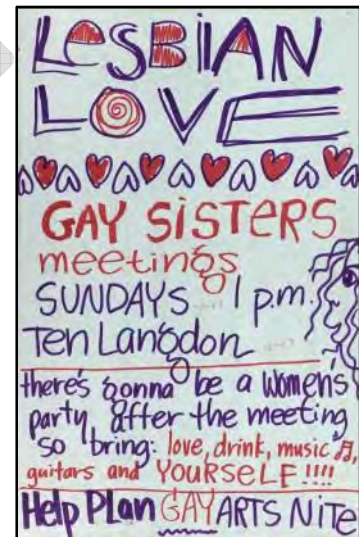 LESBIAN
LOVE
GAY SISTERS
meetings
SUNDAYS 1 p.m.
Ten Langdon
there's gonna be a women's
party after the meeting
so bring: love, drink, music
guitars and YOURSELF!!!!
Help PLan GAY ARTS NiTe